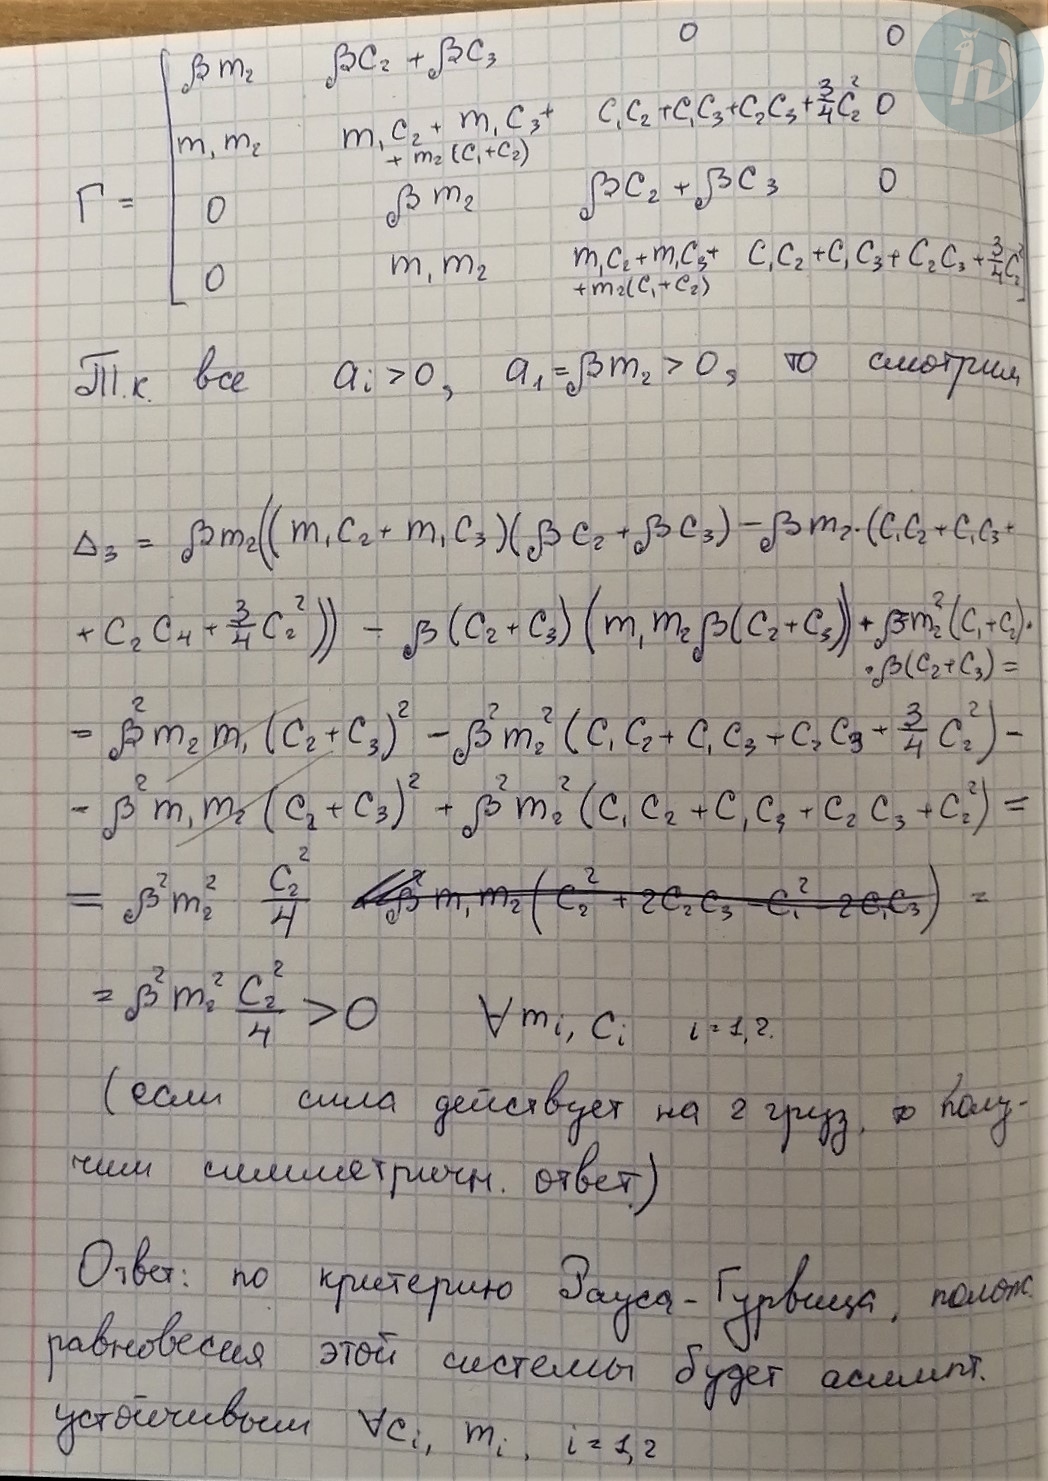 βm₂ βC₂ + βC₃ 0 0
m₁m₂ m₁C₂ + m₁C₃ + C₁C₂ + C₁C₃ + C₂C₃ + 3/4 C₂² 0
+ m₂(C₁+C₂)
Γ = 0 βm₂ βC₂ + βC₃ 0
0 m₁m₂ m₁C₂ + m₁C₃ + C₁C₂ + C₁C₃ + C₂C₃ + 3/4 C₂²
+ m₂(C₁+C₂)
Т.к. все aᵢ > 0, a₁ = βm₂ > 0, то смотрим
Δ₃ = βm₂((m₁C₂ + m₁C₃)(βC₂ + βC₃) − βm₂·(C₁C₂ + C₁C₃ +
+ C₂C₄ + 3/4 C₂²)) − β(C₂+C₃)(m₁m₂β(C₂+C₃)) + βm₂²(C₁+C₂)·
·β(C₂+C₃) =
= β²m₂m₁(C₂+C₃)² − β²m₂²(C₁C₂ + C₁C₃ + C₂C₃ + 3/4 C₂²) −
− β²m₁m₂(C₂+C₃)² + β²m₂²(C₁C₂ + C₁C₃ + C₂C₃ + C₂²) =
= β²m₂² C₂²/4 β²m₁m₂(C₂² + 2C₂C₃ − C₁² − 2C₁C₃) =
= β²m₂² C₂²/4 > 0 ∀mᵢ, cᵢ i = 1,2.
(если сила действует на 2 груз, то полу-
чим симметричн. ответ.)
Ответ: по критерию Рауса-Гурвица, полож.
равновесия этой системы будет асимпт.
устойчивым ∀cᵢ, mᵢ, i = 1,2